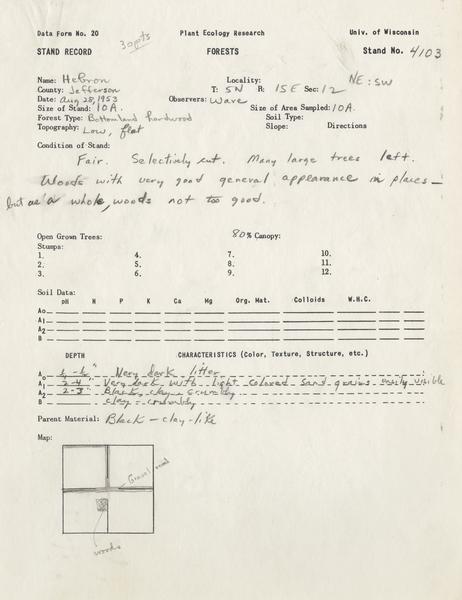 Data Form No. 20 Plant Ecology Research Univ. of Wisconsin
30 pts
STAND RECORD FORESTS Stand No. 4103
Name: Hebron Locality: NE: SW
County: Jefferson T: 5N R: 15E Sec: 12
Date: Aug 28, 1953 Observers: Ware
Size of Stand: 10A. Size of Area Sampled: 10A.
Forest Type: Bottomland hardwood Soil Type:
Topography: Low, flat Slope: Directions
Condition of Stand:
Fair. Selectively cut. Many large trees left.
Woods with very good general appearance in places —
but as a whole, woods not too good.
Open Grown Trees: 80% Canopy:
Stumps:
1. 4. 7. 10.
2. 5. 8. 11.
3. 6. 9. 12.
Soil Data:
pH N P K Ca Mg Org. Mat. Colloids W.H.C.
Ao
A1
A2
B
DEPTH CHARACTERISTICS (Color, Texture, Structure, etc.)
Ao Very dark litter
A1 2-4" Very dark with light colored sand grains easily visible
A2 2-3" Black, clay - crumbly
B clay - crumbly
Parent Material: Black - clay-like
Map:
Gravel road
woods